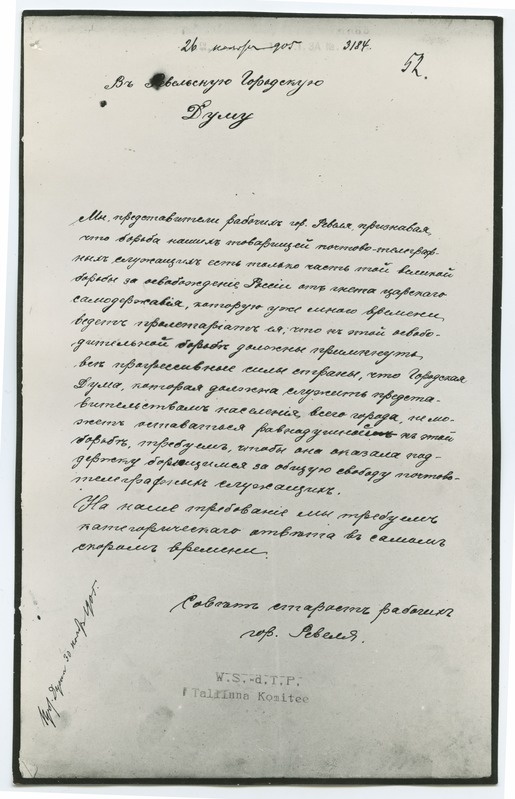 26 ноября 905 3184.
52.
Въ Ревельскую Городскую
Думу
Мы, представители рабочихъ гор. Ревеля, признавая,
что борьба нашихъ товарищей почтово-телеграф-
ныхъ служащихъ есть только часть той великой
борьбы за освобожденіе Россіи отъ гнета царскаго
самодержавія, которую уже много времени
ведетъ пролетаріатъ ея; что къ этой освобо-
дительной борьбѣ должны примкнуть
всѣ прогрессивные силы страны, что Городская
Дума, которая должна служить предста-
вительствомъ населенія всего города, не мо-
жетъ оставаться равнодушной къ этой
борьбѣ, требуемъ, чтобы она оказала под-
держку борющимся за общую свободу почтово-
телеграфныхъ служащихъ.
На наше требованіе мы требуемъ
категорическаго отвѣта въ самомъ
скоромъ времени.
Совѣтъ старостъ рабочихъ
гор. Ревеля.
W.S.-d.T.P.
Tallinna Komitee
30 ноября 1905